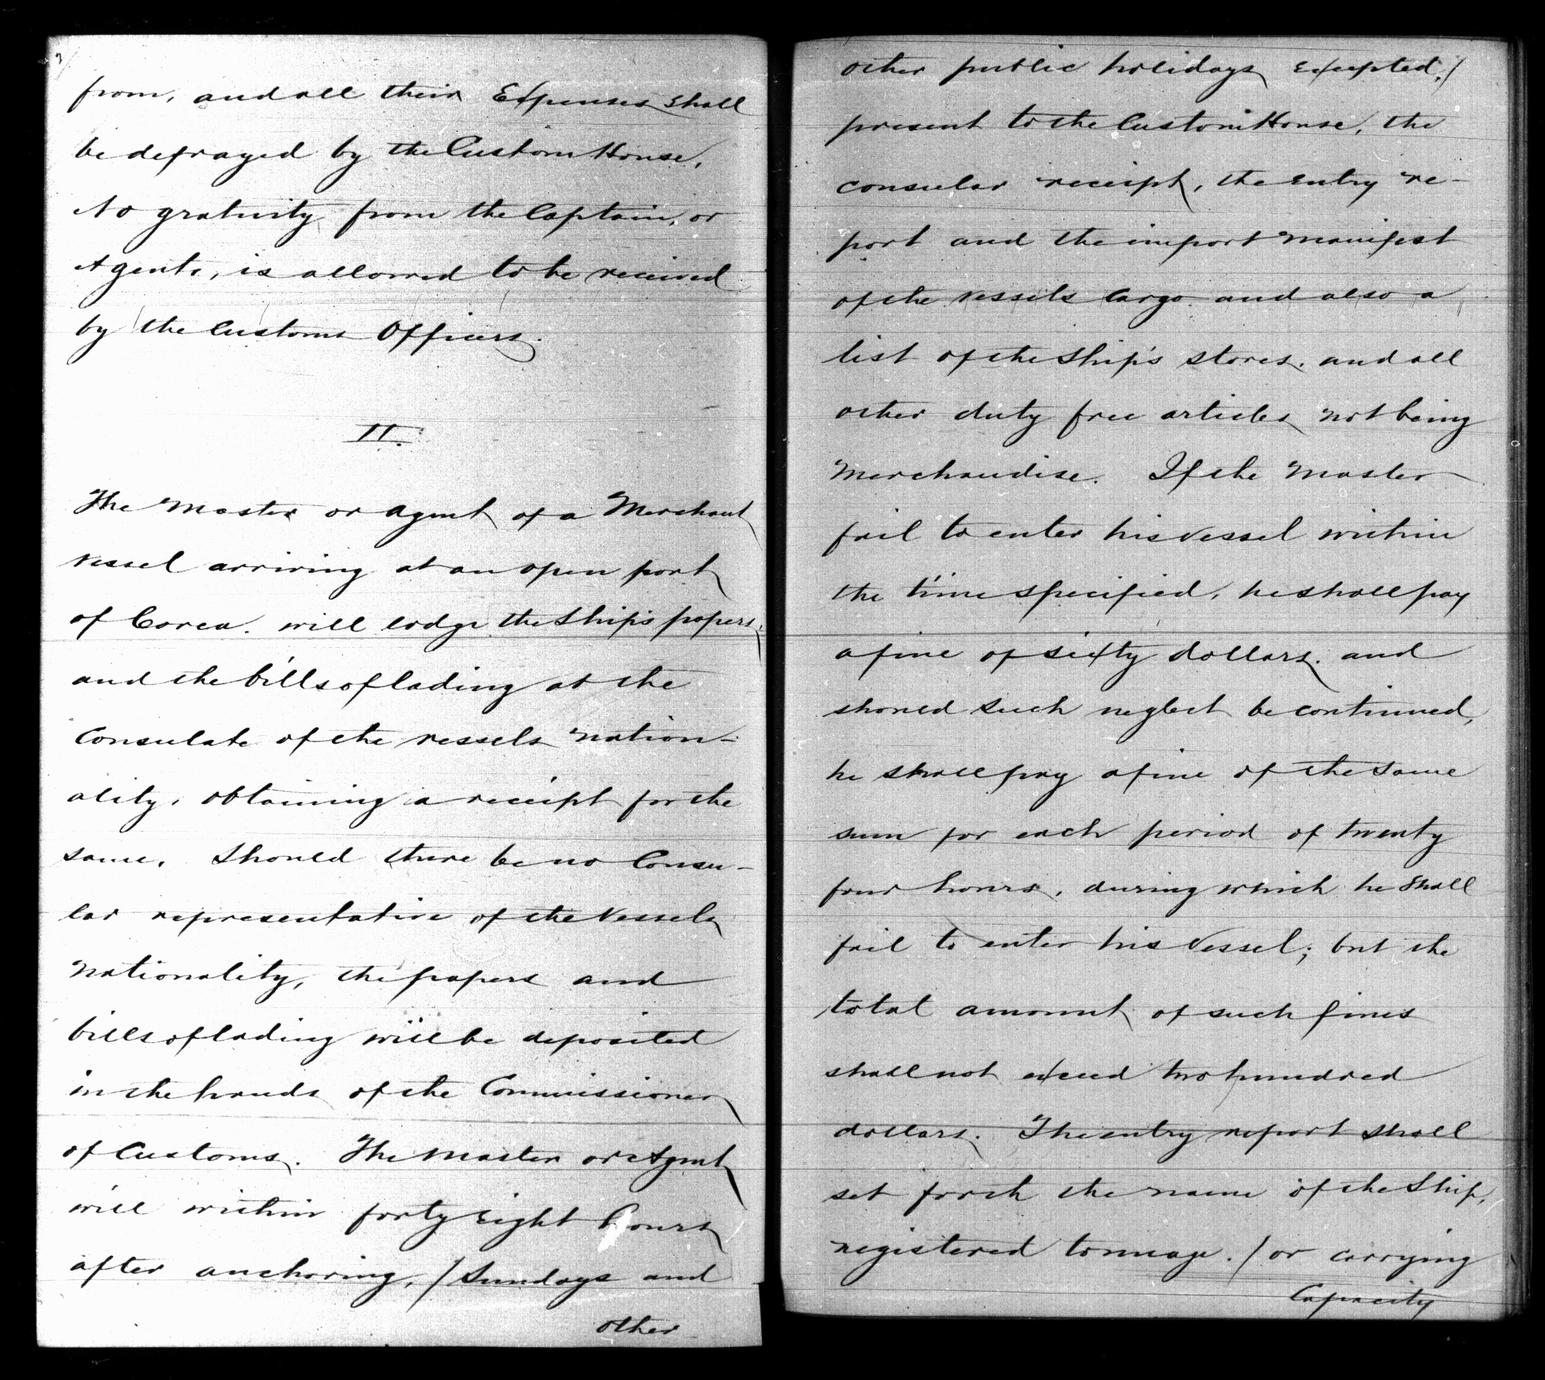 from, and all their Expenses shall
be defrayed by the Custom House.
No gratuity from the Captain, or
Agents, is allowed to be received
by the Customs Officers.
II.
The Master or agent of a Merchant
vessel arriving at an open port
of Corea. will lodge the Ship's papers,
and the bills of lading at the
Consulate of the vessels nation-
ality, obtaining a receipt for the
same. Should there be no Consu-
lar representative of the Vessels
nationality, the papers and
bills of lading will be deposited
in the hands of the Commissioner
of Customs. The Master or Agent
will within forty eight hours
after anchoring, /Sundays and
other
other public holidays excepted,/
present to the Custom House, the
consular receipt, the entry re-
port and the import manifest
of the vessels cargo and also a
list of the Ship's stores, and all
other duty free articles not being
Merchandise. If the Master
fail to enter his vessel within
the time specified, he shall pay
a fine of sixty dollars. and
should such neglect be continued,
he shall pay a fine of the same
sum for each period of twenty
four hours, during which he shall
fail to enter his vessel; but the
total amount of such fines
shall not exceed two hundred
dollars. The entry report shall
set forth the name of the Ship,
registered tonnage. /or carrying
Capacity